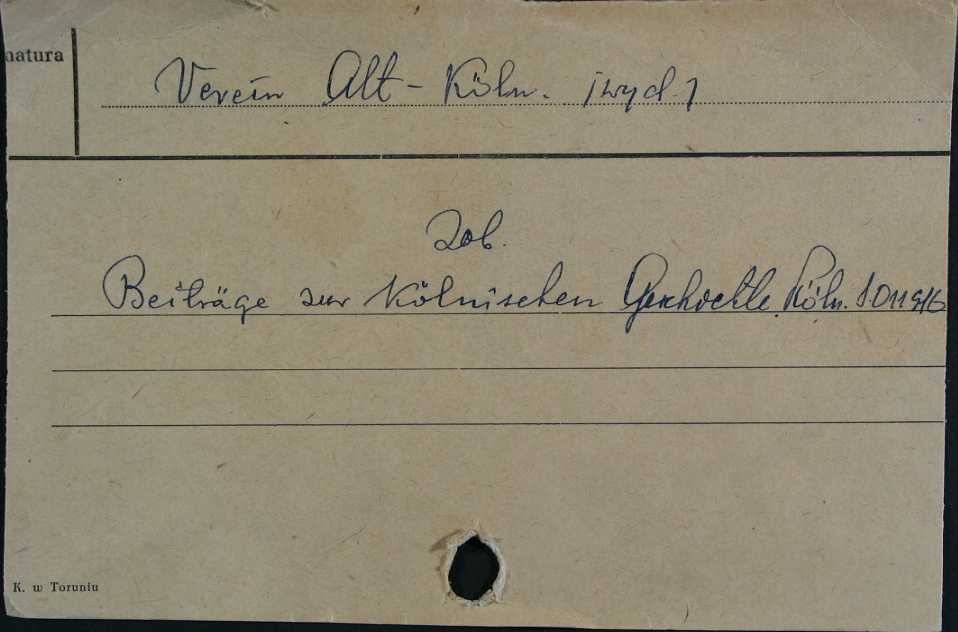 natura
Verein Alt-Köln. [wyd.]
Zob.
Beiträge zur Kölnischen Geschichte. Köln.
K. w Toruniu